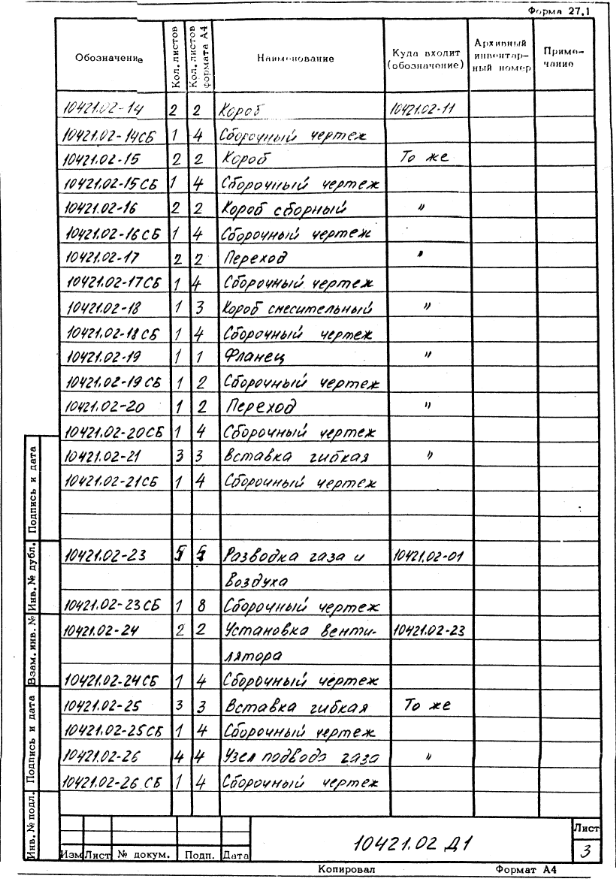 Форма 27,1
Обозначение Кол. листов Кол. листов формата А4 Наименование Куда входит (обозначение) Архивный инвентарный номер Примечание
10421.02-14 2 2 Короб 10421.02-11
10421.02-14СБ 1 4 Сборочный чертеж
10421.02-15 2 2 Короб То же
10421.02-15СБ 1 4 Сборочный чертеж
10421.02-16 2 2 Короб сборный "
10421.02-16СБ 1 4 Сборочный чертеж
10421.02-17 2 2 Переход "
10421.02-17СБ 1 4 Сборочный чертеж
10421.02-18 1 3 Короб смесительный "
10421.02-18СБ 1 4 Сборочный чертеж
10421.02-19 1 1 Фланец "
10421.02-19СБ 1 2 Сборочный чертеж
10421.02-20 1 2 Переход "
10421.02-20СБ 1 4 Сборочный чертеж
10421.02-21 3 3 Вставка гибкая "
10421.02-21СБ 1 4 Сборочный чертеж
10421.02-23 5 5 Разводка газа и 10421.02-01
воздуха
10421.02-23СБ 1 8 Сборочный чертеж
10421.02-24 2 2 Установка венти- 10421.02-23
лятора
10421.02-24СБ 1 4 Сборочный чертеж
10421.02-25 3 3 Вставка гибкая То же
10421.02-25СБ 1 4 Сборочный чертеж
10421.02-26 4 4 Узел подвода газа "
10421.02-26 СБ 1 4 Сборочный чертеж
Подпись и дата
Инв. № дубл.
Взам. инв. №
Подпись и дата
Инв. № подл.
Изм Лист № докум. Подп. Дата
10421.02 Д1
Лист
3
Копировал Формат А4